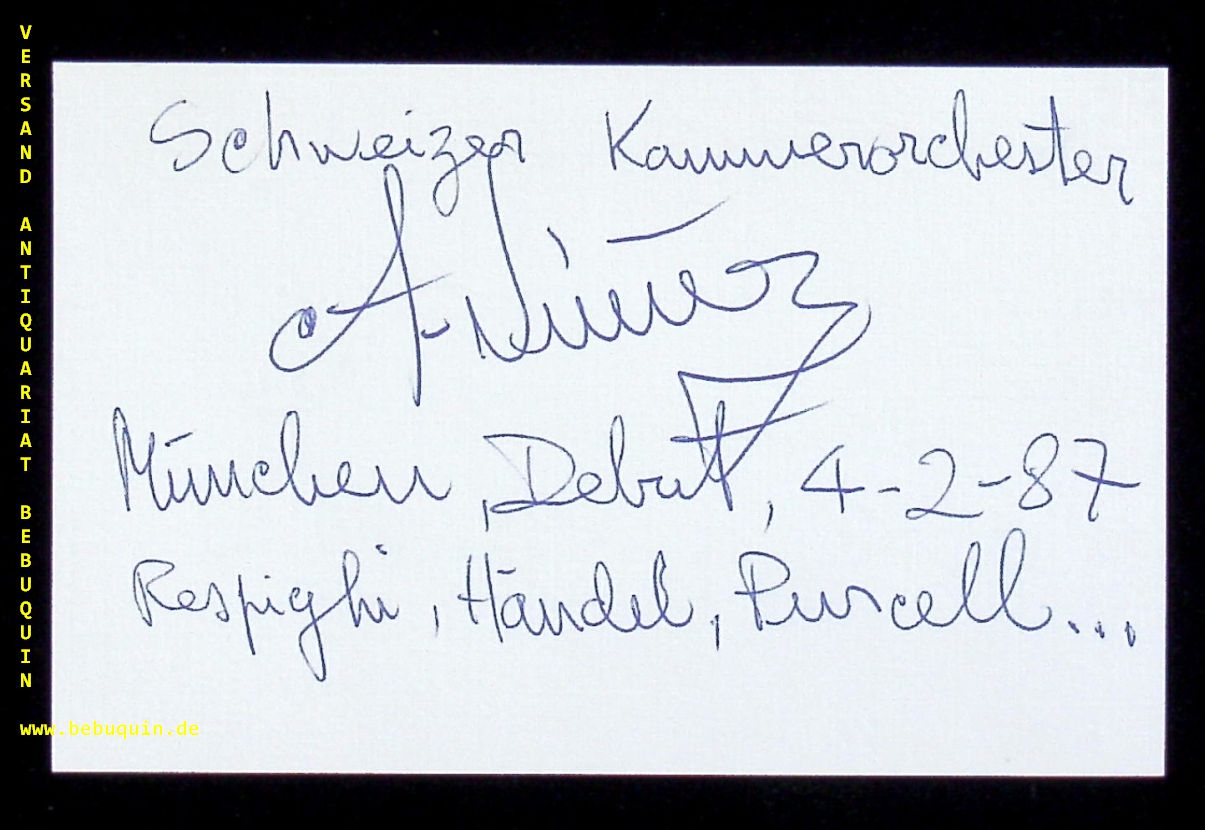 VERSAND ANTIQUARIAT BEBUQUIN
Schweizer Kammerorchester
München, Debut, 4-2-87
Respighi, Händel, Purcell...
www.bebuquin.de